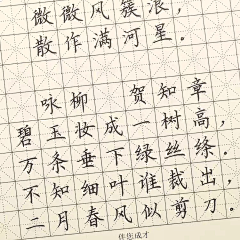 微微风簇浪，
散作满河星。
咏柳 贺知章
碧玉妆成一树高，
万条垂下绿丝绦。
不知细叶谁裁出，
二月春风似剪刀。